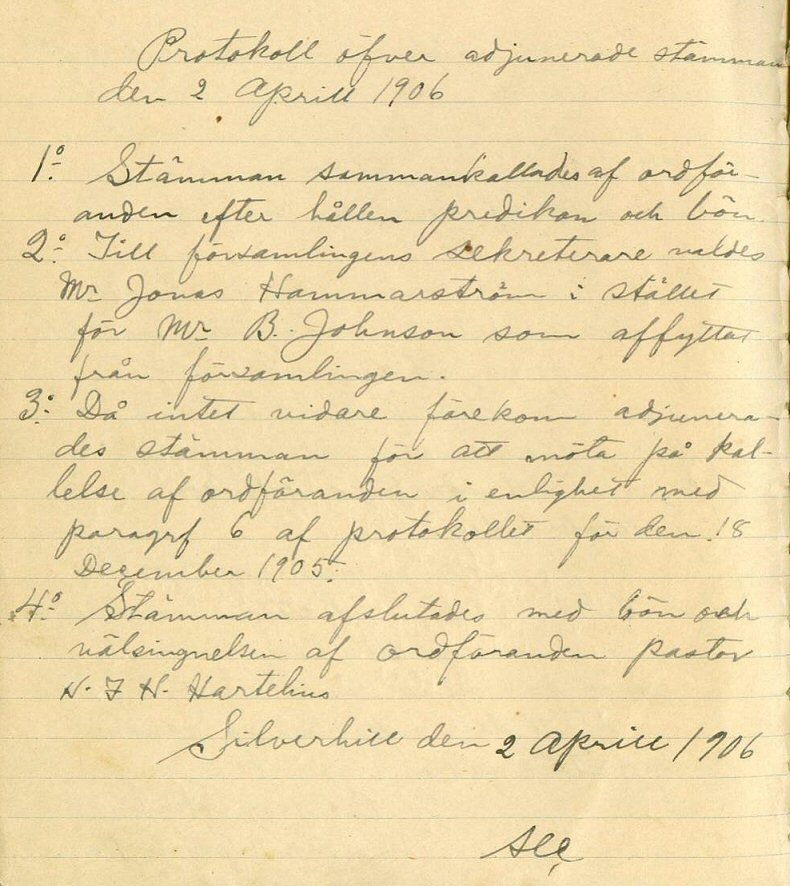 Protokoll öfver adjunerade stämman
den 2 Aprill 1906
1º Stämman sammankallades af ordför-
anden efter hållen predikan och bön.
2º Till församlingens sekreterare valdes
Mr Jonas Hammarström i stället
för Mr B. Johnson som afflyttat
från församlingen.
3º Då intet vidare förekom adjunera-
des stämman för att möta på kal-
lelse af ordföranden i enlighet med
paragrf 6 af protokollet för den 18
December 1905.
4º Stämman afslutades med bön och
välsingnelsen af ordföranden pastor
N. J N. Hartelius
Silverhill den 2 Aprill 1906